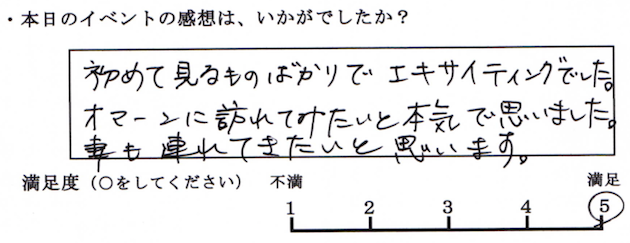 ・本日のイベントの感想は、いかがでしたか？
初めて見るものばかりで エキサイティングでした。
オマーンに訪れてみたいと本気で思いました。
も連れてきたいと思います。
満足度（○をしてください） 不満 満足
1 2 3 4 5